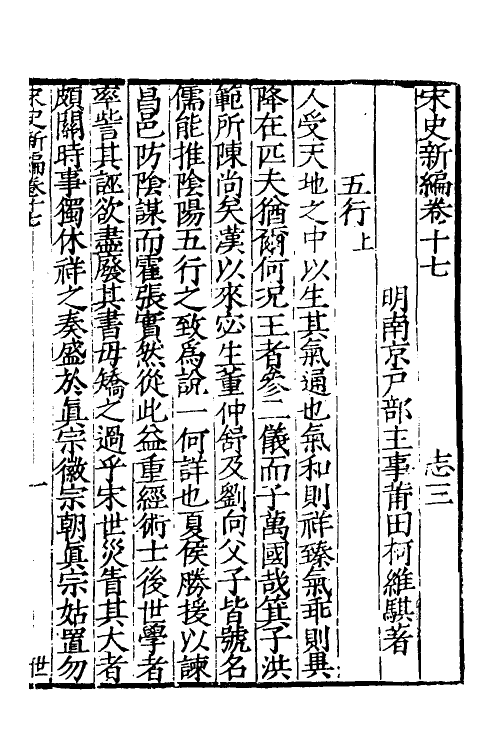 宋史新編卷十七　志三
明南京戸部主事莆田柯維騏著
五行上
人受天地之中以生其氣通也氣和則祥臻氣乖則異
降在匹夫猶爾何況王者參二儀而子萬國哉箕子洪
範所陳尚矣漢以來宓生董仲舒及劉向父子皆號名
儒能推陰陽五行之致爲說一何詳也夏侯勝援以諫
昌邑防陰謀而霍張實然從此益重經術士後世學者
率訾其誣欲盡廢其書毋矯之過乎宋世災眚其大者
頗關時事獨休祥之奏盛於眞宗徽宗朝眞宗姑置勿
宋史新編卷十七　一　世